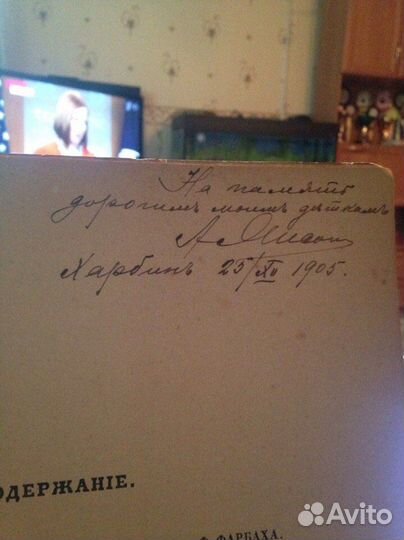 На память
дорогимъ моимъ дѣткамъ
Харбинъ 25/XII 1905.
ОДЕРЖАНІЕ.
ФАРБАХА.
Avito